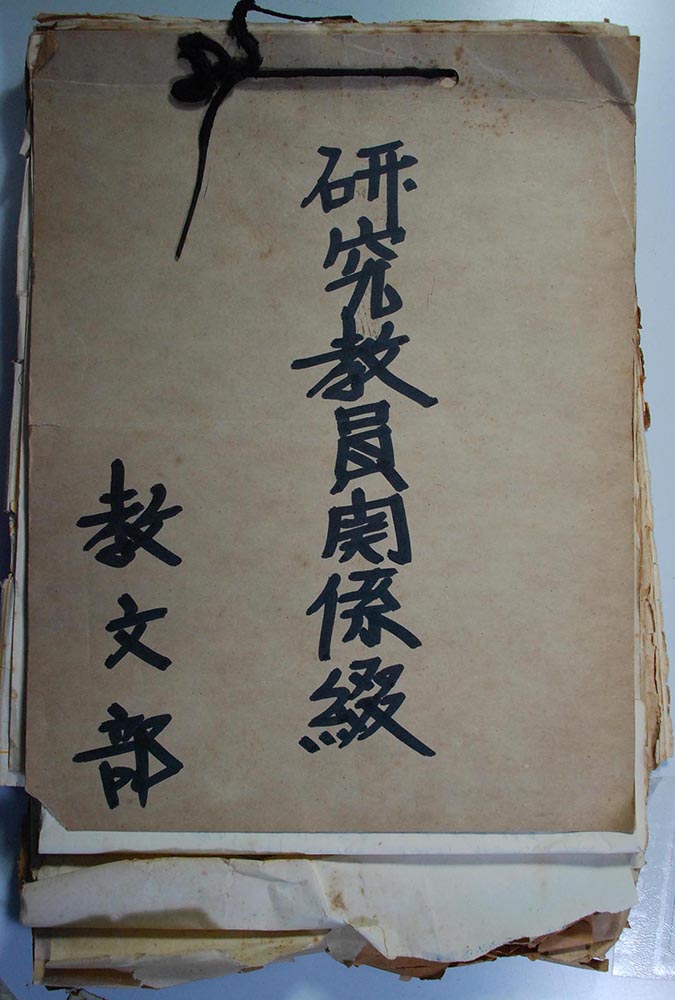 研究教員関係綴
教文部